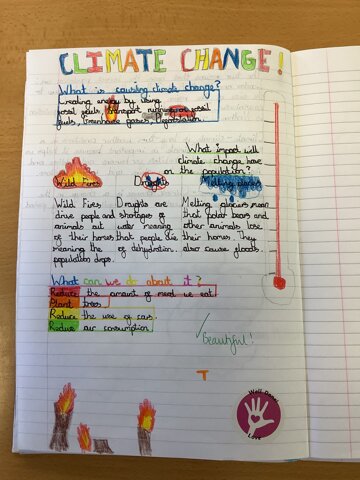 CLIMATE CHANGE!
What is causing climate change?
Creating energy by using
fossil fuels, transport running on fossil
fuels, Greenhouse gases, Deforestation.
What impact will
climate change have
on the population?
Wild Fires
Draughts
Melting glaciers
Wild Fires
drive people and
animals out
of their homes
meaning the
population drops.
Draughts are
shortages of
water meaning
that people die
of dehydration.
Melting glaciers mean
that polar bears and
other animals lose
their homes. They
also cause floods.
What can we do about it?
Reduce the amount of meat we eat
Plant trees
Reduce the use of cars.
Reduce our consumption
✓ Beautiful!
T
Well-being
Love